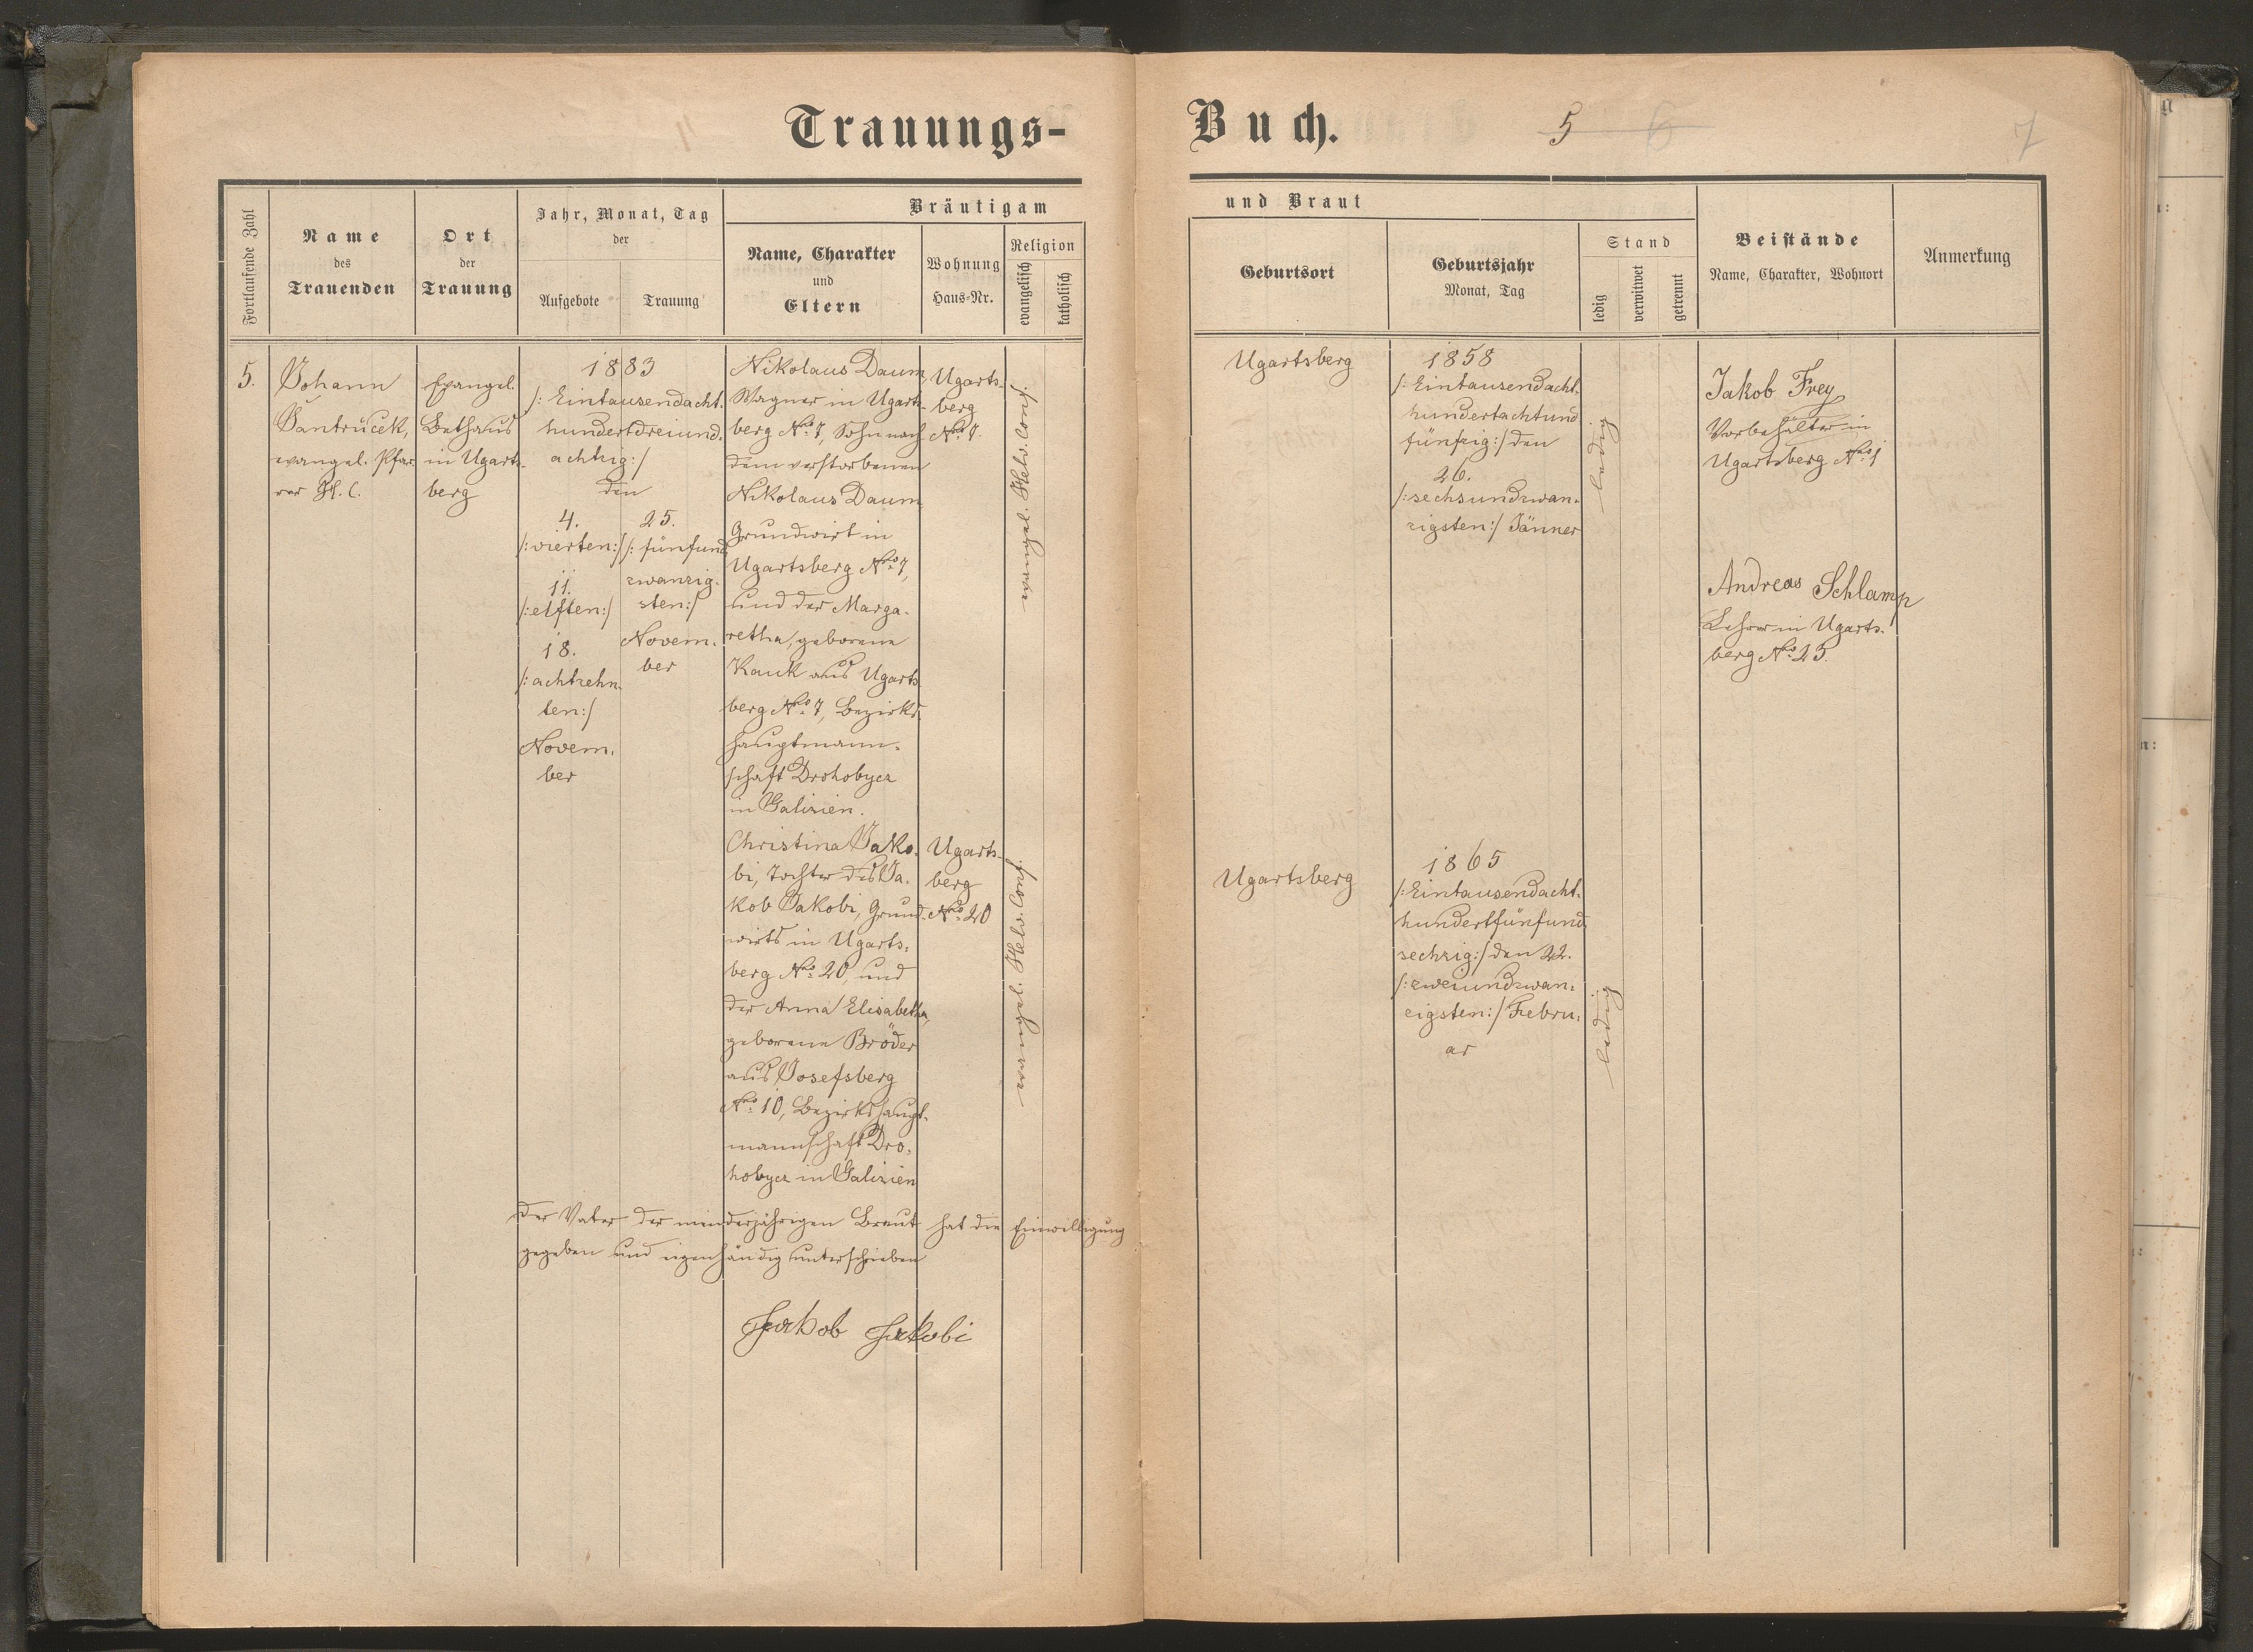 Trauungs-
Buch.
5 6
7
Fortlaufende Zahl
Name
des
Trauenden
Ort
der
Trauung
Jahr, Monat, Tag
der
Aufgebote
Trauung
Bräutigam
Name, Charakter
und
Eltern
Wohnung
Haus-Nr.
Religion
evangelisch
katholisch
und Braut
Geburtsort
Geburtsjahr
Monat, Tag
Stand
ledig
verwitwet
getrennt
Beistände
Name, Charakter, Wohnort
Anmerkung
5.
Johann
Jantrucek,
evangel. Pfar-
rer H. C.
Evangel.
Bethaus
in Ugarts-
berg
1883
/: Eintausendacht-
hundertdreiund-
achtzig:/
den
4.
/:vierten:/
11.
/:elften:/
18.
/:achtzehn-
ten:/
Novem-
ber
25.
/: fünfund
zwanzig-
sten:/
Novem-
ber
Nikolaus Daum,
Wagner in Ugarts-
berg No. 7, Sohn nach
dem verstorbenen
Nikolaus Daum
Grundwirt in
Ugartsberg No. 7,
und der Marga-
retha, geborene
Kauk aus Ugarts-
berg No. 7, Bezirks-
hauptmann-
schaft Drohobycz
in Galizien.
Ugarts-
berg
No. 7.
evangel. Helv. Conf.
Christina Jako-
bi, Tochter des Ja-
kob Jakobi, Grund-
wirts in Ugarts-
berg No. 20, und
der Anna Elisabetha,
geborene Bröder
aus Josefsberg
No. 10, Bezirkshaupt-
mannschaft Dro-
hobycz in Galizien
Ugarts-
berg
No. 20
evangel. Helv. Conf.
Der Vater der minderjährigen Braut hat die Einwilligung
gegeben und eigenhändig unterschrieben
Jakob Jakobi
Ugartsberg
1858
/: Eintausendacht-
hundertachtund
fünfzig:/ den
26.
/:sechsundzwan-
zigsten:/ Jänner
ledig
Jakob Frey
Vorbehalter in
Ugartsberg No. 1
Andreas Schlamp
Lehrer in Ugarts-
berg No. 25.
Ugartsberg
1865
/:Eintausendacht-
hundertfünfund
sechzig:/ den 22.
/:zweiundzwan-
zigsten:/ Febru-
ar
ledig